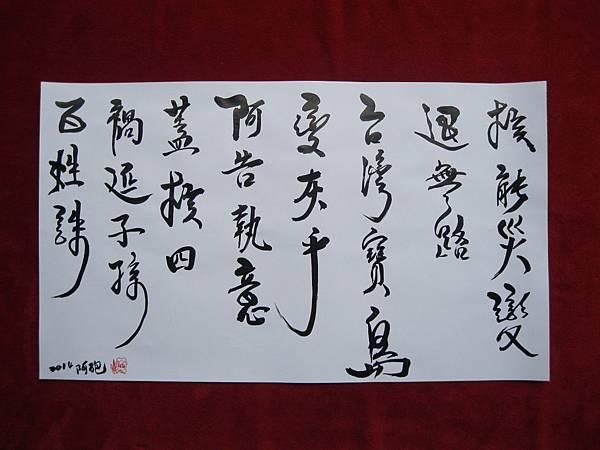 核能災變
退無路
台灣寶島
變灰乎
阿告執意
蓋核四
禍延子孫
百姓誅
2014 阿砲